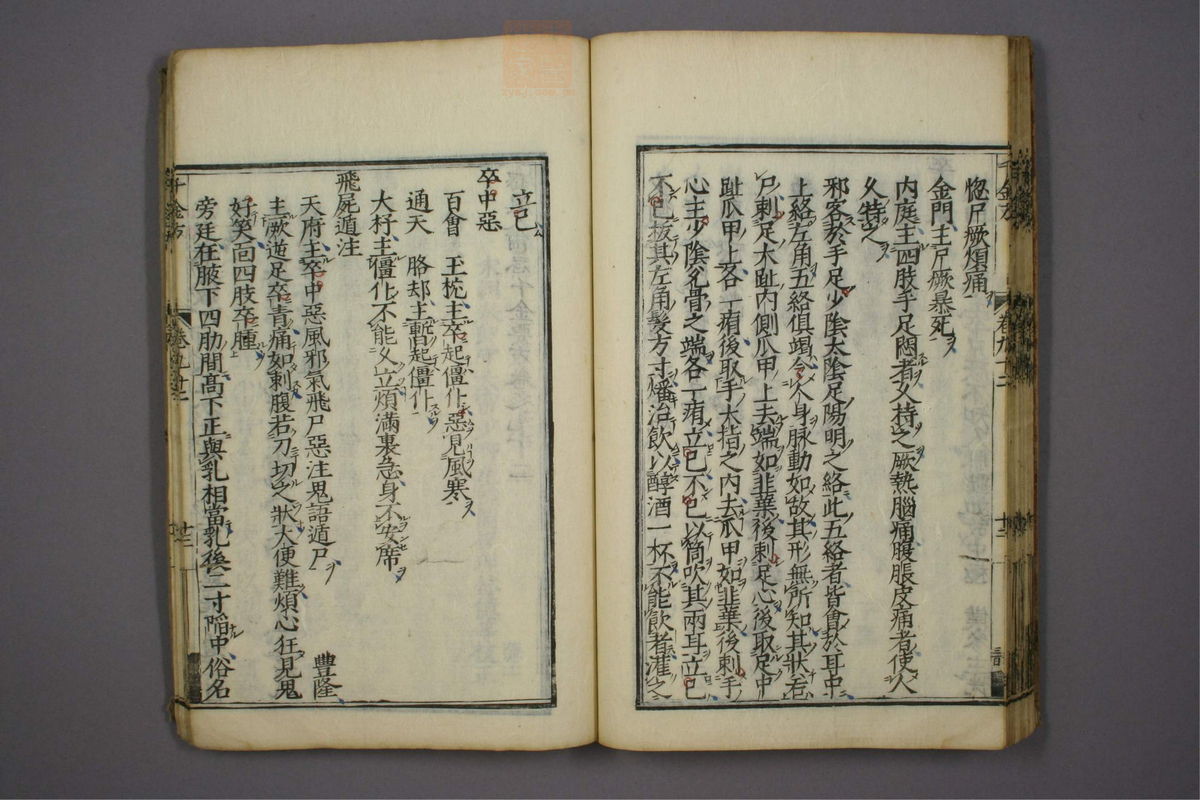 惚尸厥煩痛
金門主尸厥暴死
内庭主四肢手足悶者久持之厥熱腦痛腹脹皮痛者使人
久持之
邪客於手足少陰太陰足陽明之絡此五絡者皆會於耳中
上絡左角五絡俱竭令人身脉動如故其形無所知其狀若
尸刺足大趾内側爪甲上去端如韭葉後刺足心後取足中
趾爪甲上各一痏後取手大指之内去爪甲如韭葉後刺手
心主少陰兌骨之端各一痏立已不已以筒吹其兩耳立已
不已拔其左角髮方寸燔治飲以醇酒一杯不能飲者灌之
立已
卒中惡
百會 玉枕主卒起僵仆惡見風寒
通天 胳却主暫起僵仆
大杼主僵仆不能久立煩滿裏急身不安席
飛屍遁注
天府主卒中惡風邪氣飛尸惡注鬼語遁尸 豐隆
主厥逆足卒青痛如刺腹若刀切之狀大便難煩心狂見鬼
好笑面四肢卒腫
旁廷在腋下四肋間高下正與乳相當乳後二寸陷中俗名
千金方
卷九十二
十三